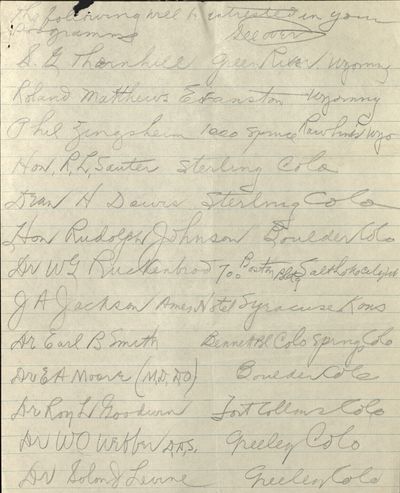 The following will be intrested in your
programme See over
S. G Thornhill Green River Wyomny
Roland Matthews Evanston Wyomny
Phil Zingsheim 1020 Spruce Rawlins Wyo
Hon, R, L, Sauter Sterling Colo
Dean H Davis Sterling Colo
Hon Rudolph Johnson Boulder Colo
Dr W G Ruckenbrod 700 Boston Bldg
J A Jackson Ames Hotel Syracuse Kans
Dr Earl B Smith Bennet Bl Colo Spring Colo
Dr E A Moore (M.D, D.O) Boulder Colo
Dr Roy L Goodwin Fort Collins Colo
Dr W O Webber D.D.S. Greeley Colo
Dr Levine Greeley Colo